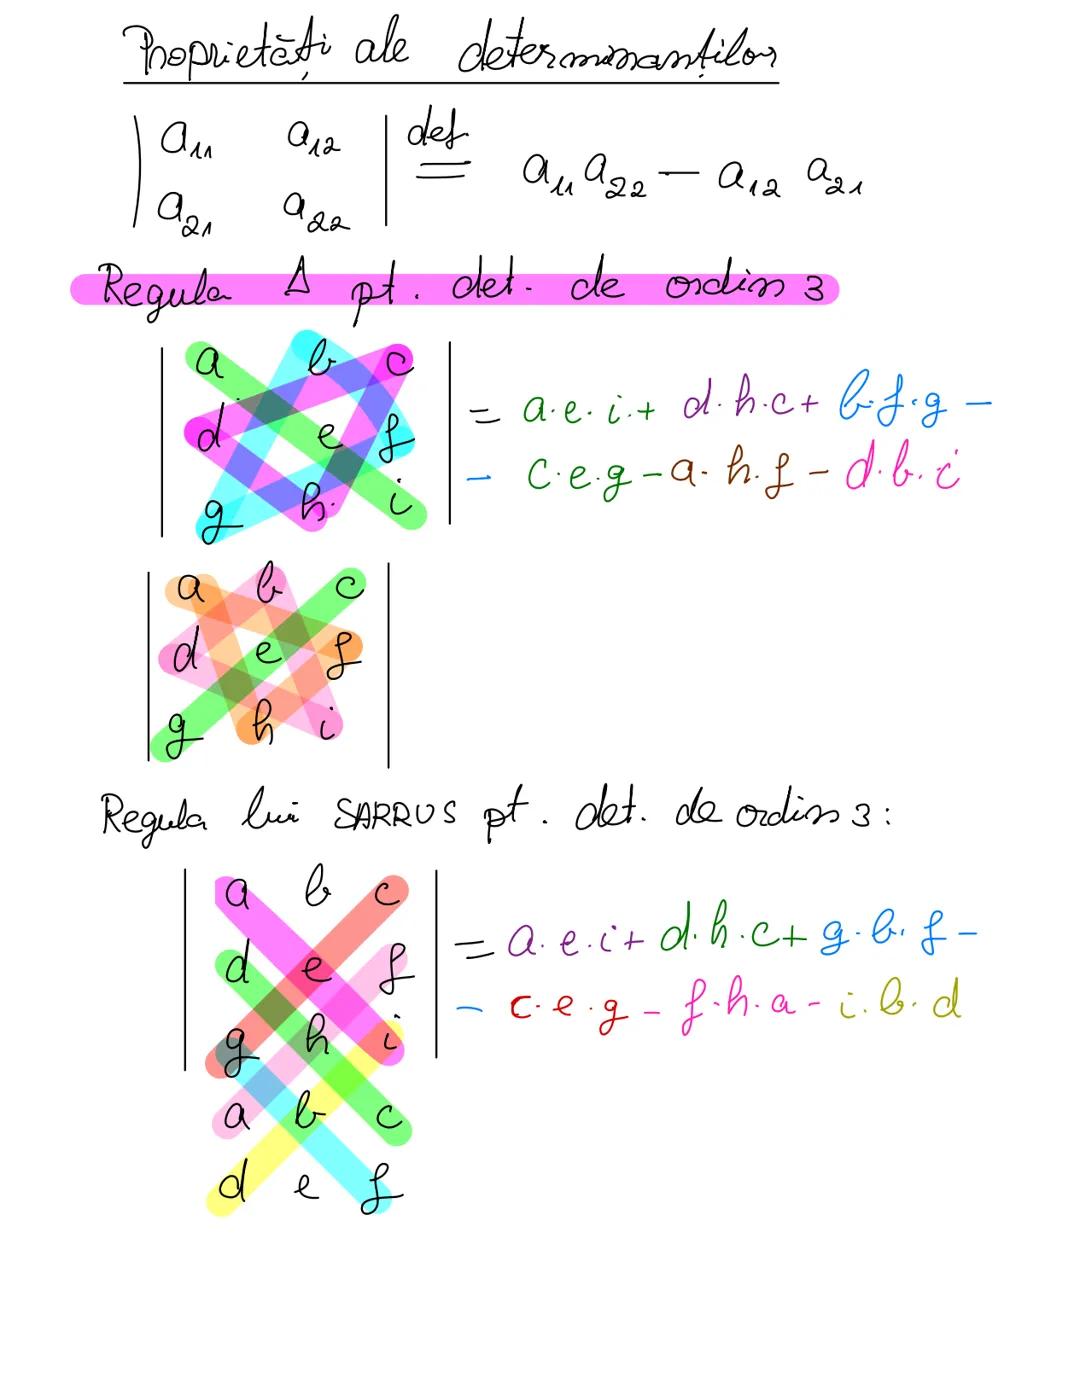 Proprietăți ale determinanților
| a₁₁ a₁₂ | def
| a₂₁ a₂₂ | = a₁₁ a₂₂ − a₁₂ a₂₁
Regula Δ pt. det. de ordin 3
a b c
d e f = a·e·i + d·h·c + b·f·g −
g h i − c·e·g − a·h·f − d·b·i
a b c
d e f
g h i
Regula lui SARRUS pt. det. de ordin 3:
a b c
d e f = a·e·i + d·h·c + g·b·f −
g h i − c·e·g − f·h·a − i·b·d
a b c
d e f